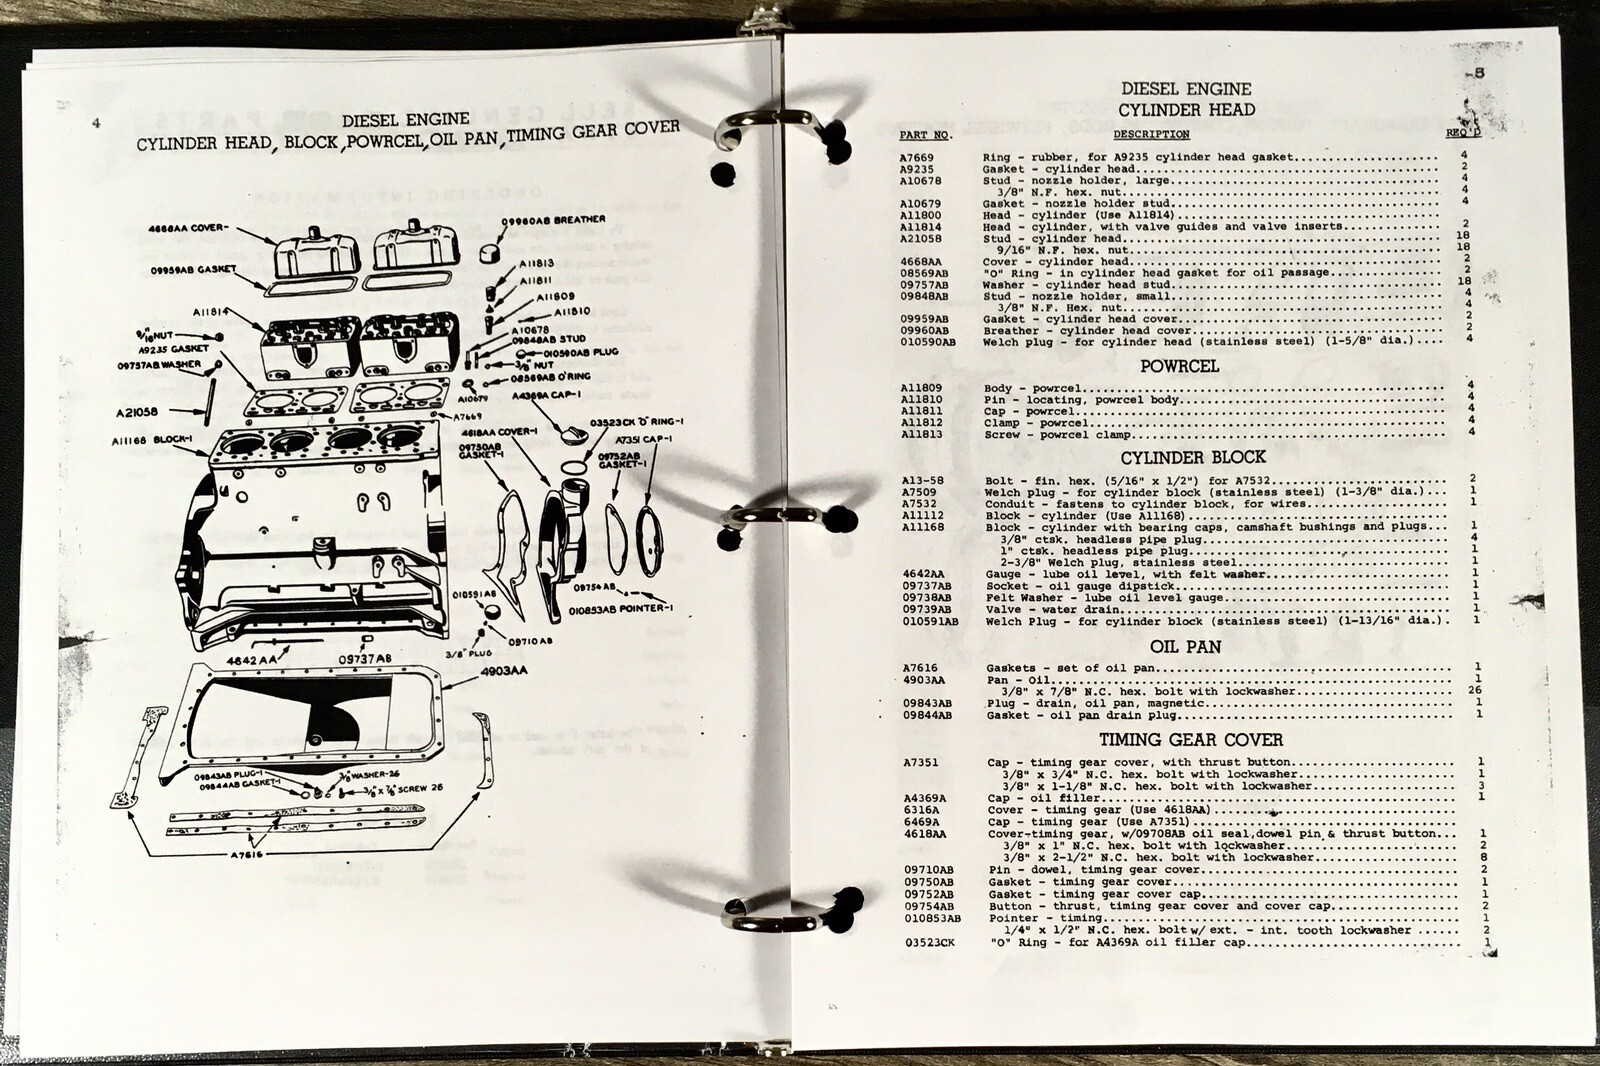 4
DIESEL ENGINE
CYLINDER HEAD, BLOCK, POWRCEL, OIL PAN, TIMING GEAR COVER
4668AA COVER-
09960AB BREATHER
09959AB GASKET
A11813
A11811
A11809
A11814
A11810
9/16" NUT
A10678
09848AB STUD
A9235 GASKET
010590AB PLUG
09757AB WASHER
3/8" NUT
08569AB O'RING
A10679
A4369A CAP-1
A21058
A7669
03523CK "O" RING-1
A11168 BLOCK-1
4618AA COVER-1
A7351 CAP-1
09750AB
GASKET-1
09752AB
GASKET-1
09754AB
010591AB
010853AB POINTER-1
09710AB
3/8" PLUG
4642AA
09737AB
4903AA
09843AB PLUG-1
3/8 WASHER-26
09844AB GASKET-1
3/8 x 7/8" SCREW 26
A7616
5
DIESEL ENGINE
CYLINDER HEAD
PART NO. DESCRIPTION REQ'D
A7669 Ring - rubber, for A9235 cylinder head gasket 4
A9235 Gasket - cylinder head 2
A10678 Stud - nozzle holder, large 4
3/8" N.F. hex. nut 4
A10679 Gasket - nozzle holder stud 4
A11800 Head - cylinder (Use A11814)
A11814 Head - cylinder, with valve guides and valve inserts 2
A21058 Stud - cylinder head 18
9/16" N.F. hex. nut 18
4668AA Cover - cylinder head 2
08569AB "O" Ring - in cylinder head gasket for oil passage 2
09757AB Washer - cylinder head stud 18
09848AB Stud - nozzle holder, small 4
3/8" N.F. Hex. nut 4
09959AB Gasket - cylinder head cover 2
09960AB Breather - cylinder head cover 2
010590AB Welch plug - for cylinder head (stainless steel) (1-5/8" dia.) 4
POWRCEL
A11809 Body - powrcel 4
A11810 Pin - locating, powrcel body 4
A11811 Cap - powrcel 4
A11812 Clamp - powrcel 4
A11813 Screw - powrcel clamp 4
CYLINDER BLOCK
A13-58 Bolt - fin. hex. (5/16" x 1/2") for A7532 2
A7509 Welch plug - for cylinder block (stainless steel) (1-3/8" dia.) 1
A7532 Conduit - fastens to cylinder block, for wires 1
A11112 Block - cylinder (Use A11168)
A11168 Block - cylinder with bearing caps, camshaft bushings and plugs 1
3/8" ctsk. headless pipe plug 4
1" ctsk. headless pipe plug 1
2-3/8" Welch plug, stainless steel 1
4642AA Gauge - lube oil level, with felt washer 1
09737AB Socket - oil gauge dipstick 1
09738AB Felt Washer - lube oil level gauge 1
09739AB Valve - water drain 1
010591AB Welch Plug - for cylinder block (stainless steel) (1-13/16" dia.) 1
OIL PAN
A7616 Gaskets - set of oil pan 1
4903AA Pan - Oil 1
3/8" x 7/8" N.C. hex. bolt with lockwasher 26
09843AB Plug - drain, oil pan, magnetic 1
09844AB Gasket - oil pan drain plug 1
TIMING GEAR COVER
A7351 Cap - timing gear cover, with thrust button 1
3/8" x 3/4" N.C. hex. bolt with lockwasher 1
3/8" x 1-1/8" N.C. hex. bolt with lockwasher 3
A4369A Cap - oil filler 1
6316A Cover - timing gear (Use 4618AA)
6469A Cap - timing gear (Use A7351)
4618AA Cover-timing gear, w/09708AB oil seal, dowel pin & thrust button 1
3/8" x 1" N.C. hex. bolt with lockwasher 2
3/8" x 2-1/2" N.C. hex. bolt with lockwasher 8
09710AB Pin - dowel, timing gear cover 2
09750AB Gasket - timing gear cover 1
09752AB Gasket - timing gear cover cap 1
09754AB Button - thrust, timing gear cover and cover cap 2
010853AB Pointer - timing 1
1/4" x 1/2" N.C. hex. bolt w/ ext. - int. tooth lockwasher 2
03523CK "O" Ring - for A4369A oil filler cap 1